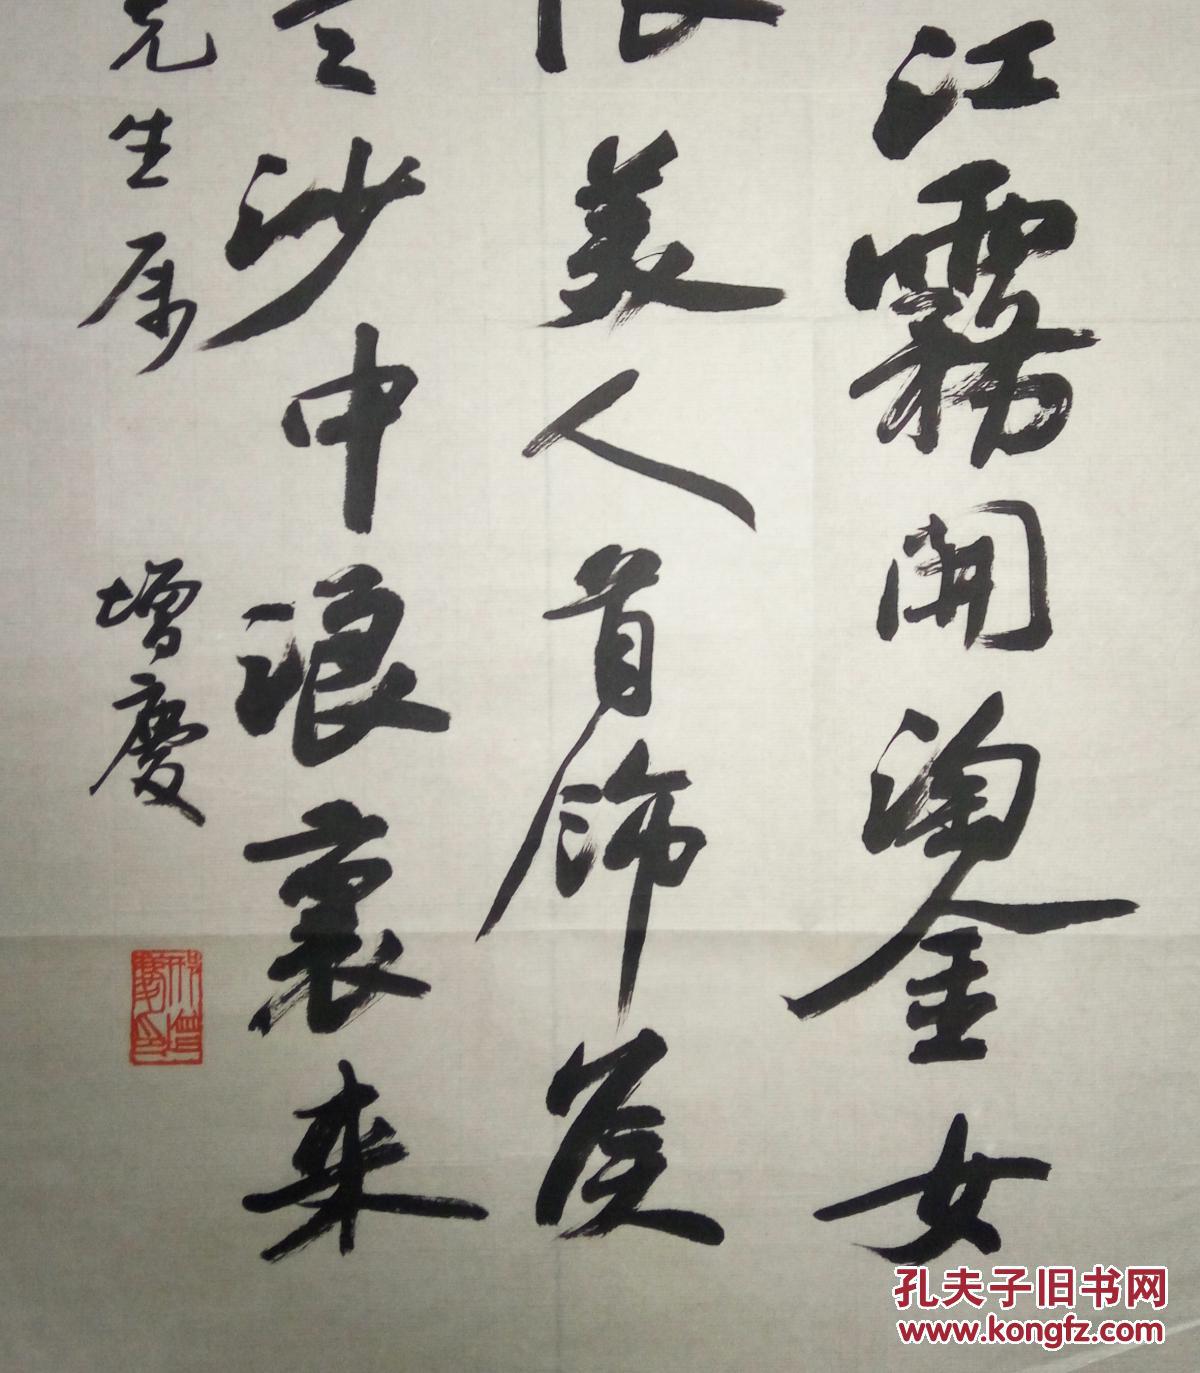 江霧開淘金女
美人首飾侯
沙中浪裏来
先生属
增慶
孔夫子旧书网
www.kongfz.com